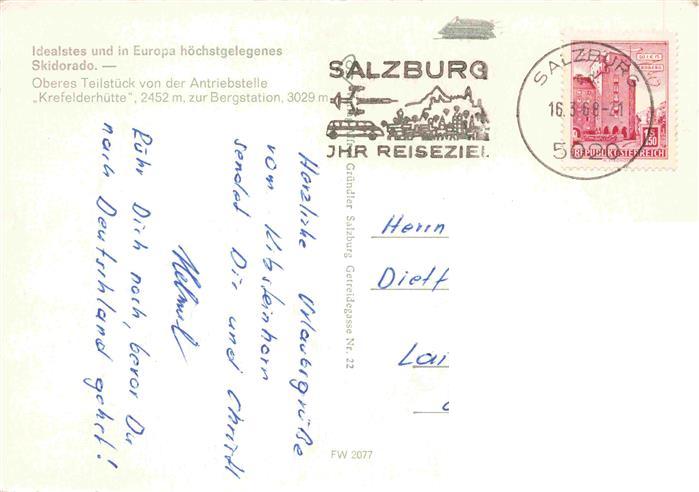 Idealstes und in Europa höchstgelegenes
Skidorado. —
Oberes Teilstück von der Antriebstelle
„Krefelderhütte", 2452 m, zur Bergstation, 3029 m
SALZBURG
IHR REISEZIEL
SALZBURG
16.3.68-21
5020
WIEN
1.50
REPUBLIK ÖSTERREICH
Herzliche Urlaubsgrüße
vom Kitzsteinhorn
sendet Dir und Christl
Helmut
Rühr Dich noch, bevor Du
nach Deutschland gehst!
Gründler Salzburg Getreidegasse Nr. 22
Herrn
Diet
Lai
FW 2077